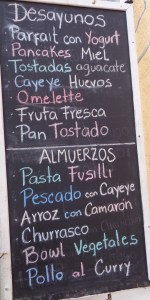 Desayunos
Parfait con Yogurt
Pancakes Miel
Tostadas aguacate
Cayeye Huevos
Omelette
Fruta Fresca
Pan Tostado
ALMUERZOS
Pasta Fusilli
Pescado con Cayeye
Arroz con Camarón
Churrasco
Bowl Vegetales
Pollo al Curry